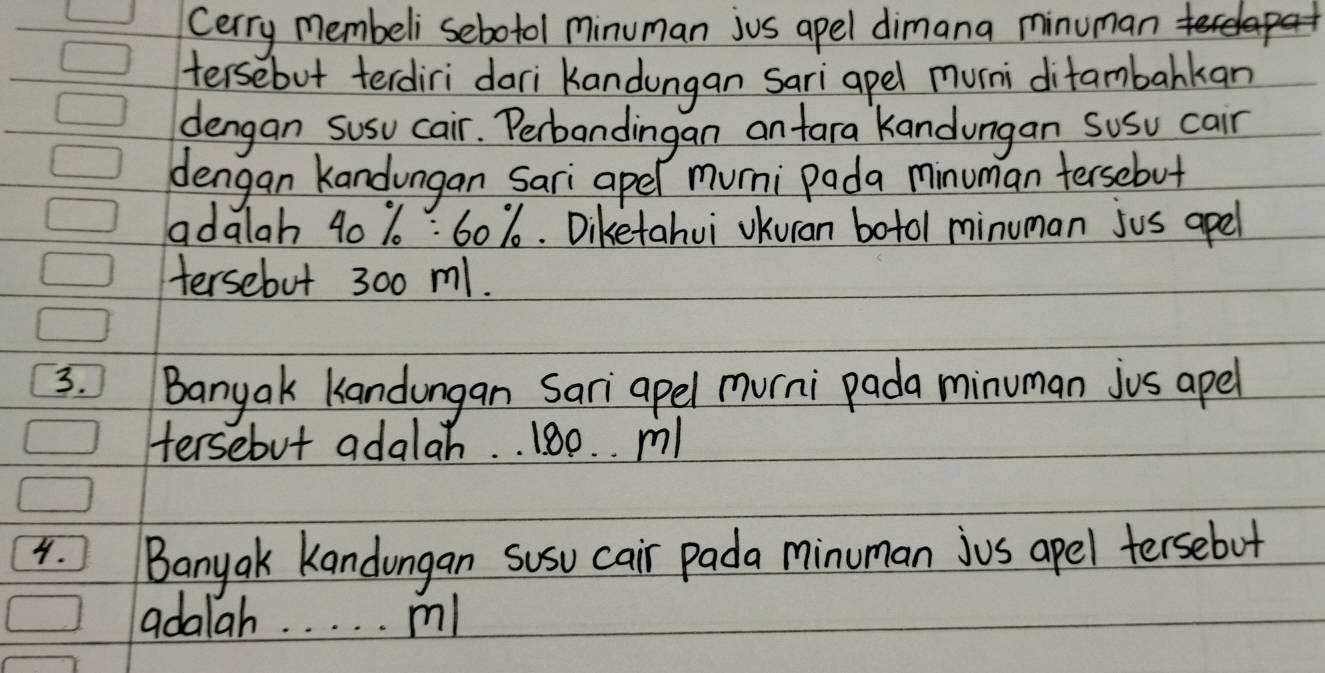 Cerry membeli sebotol minuman jus apel dimana minuman terdapat
tersebut terdiri dari kandungan sari apel murni ditambahkan
dengan susu cair. Perbandingan antara kandungan susu cair
dengan kandungan sari apel murni pada minuman tersebut
adalah 40% : 60%. Diketahui ukuran botol minuman jus apel
tersebut 300 ml.
3. Banyak kandungan sari apel murni pada minuman jus apel
tersebut adalah ..180.. ml
4. Banyak kandungan susu cair pada minuman jus apel tersebut
adalah ..... ml